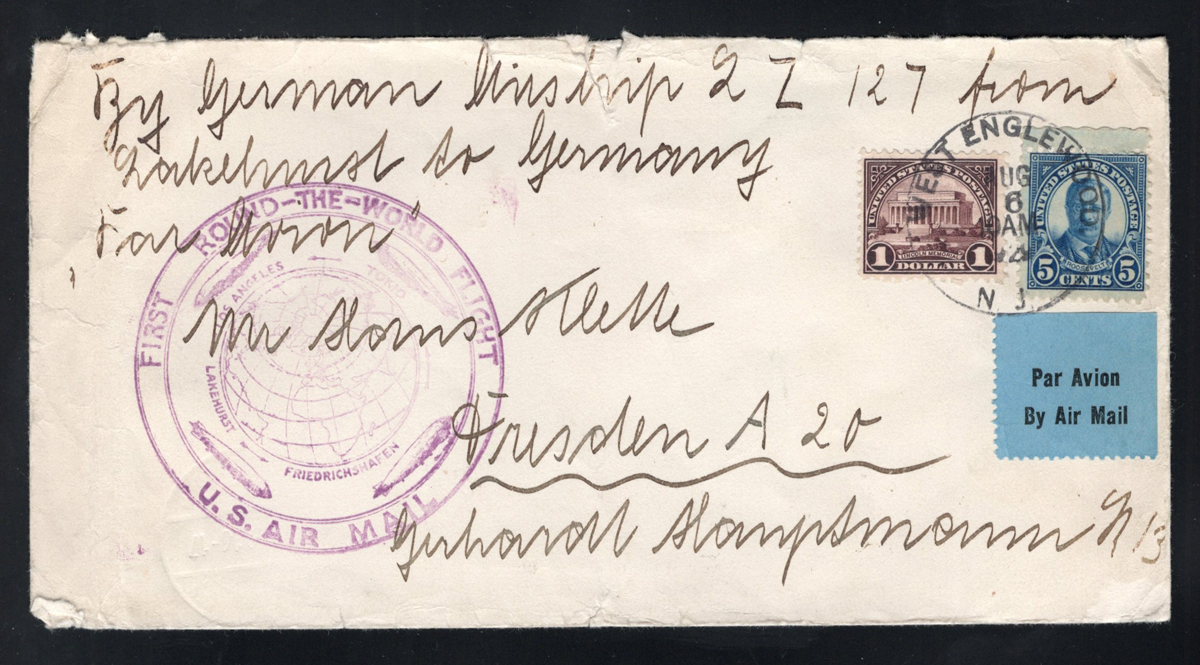 By German Airship L Z 127 from
Lakehurst to Germany
Mr Hans Klette
Dresden A 20
Gerhardt Hauptmann 13
FIRST ROUND-THE-WORLD FLIGHT
U.S. AIR MAIL
LOS ANGELES
LAKEHURST
FRIEDRICHSHAFEN
WEST ENGLEWOOD
AUG
6
N J
UNITED STATES POSTAGE
LINCOLN MEMORIAL
1 DOLLAR 1
UNITED STATES POSTAGE
ROOSEVELT
5 CENTS 5
Par Avion
By Air Mail